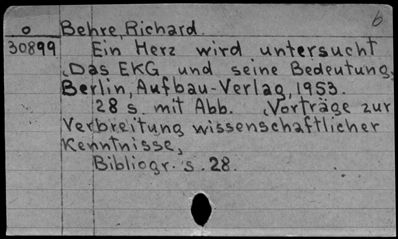 b
o Behre, Richard.
30899 Ein Herz wird untersucht
„Das EKG und seine Bedeutung„
Berlin, Aufbau-Verlag, 1953.
28 s. mit Abb. „Vorträge zur
Verbreitung wissenschaftlicher
Kenntnisse„
Bibliogr. s. 28.